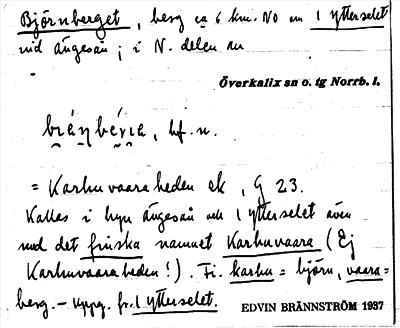 Björnberget, berg ca 6 km. NO om 1 ytterselet
vid ängesån; i N. delen av
Överkalix sn o. tg Norrb. l.
hf. n.
= Karhuvaaraheden ek, G 23.
Kallas i byn ängesån och 1 ytterselet även
med det finska namnet Karhuvaara (Ej
Karhuvaaraheden!). Fi. karhu = björn, vaara =
berg. – uppg. fr. 1 ytterselet.
EDVIN BRÄNNSTRÖM 1937